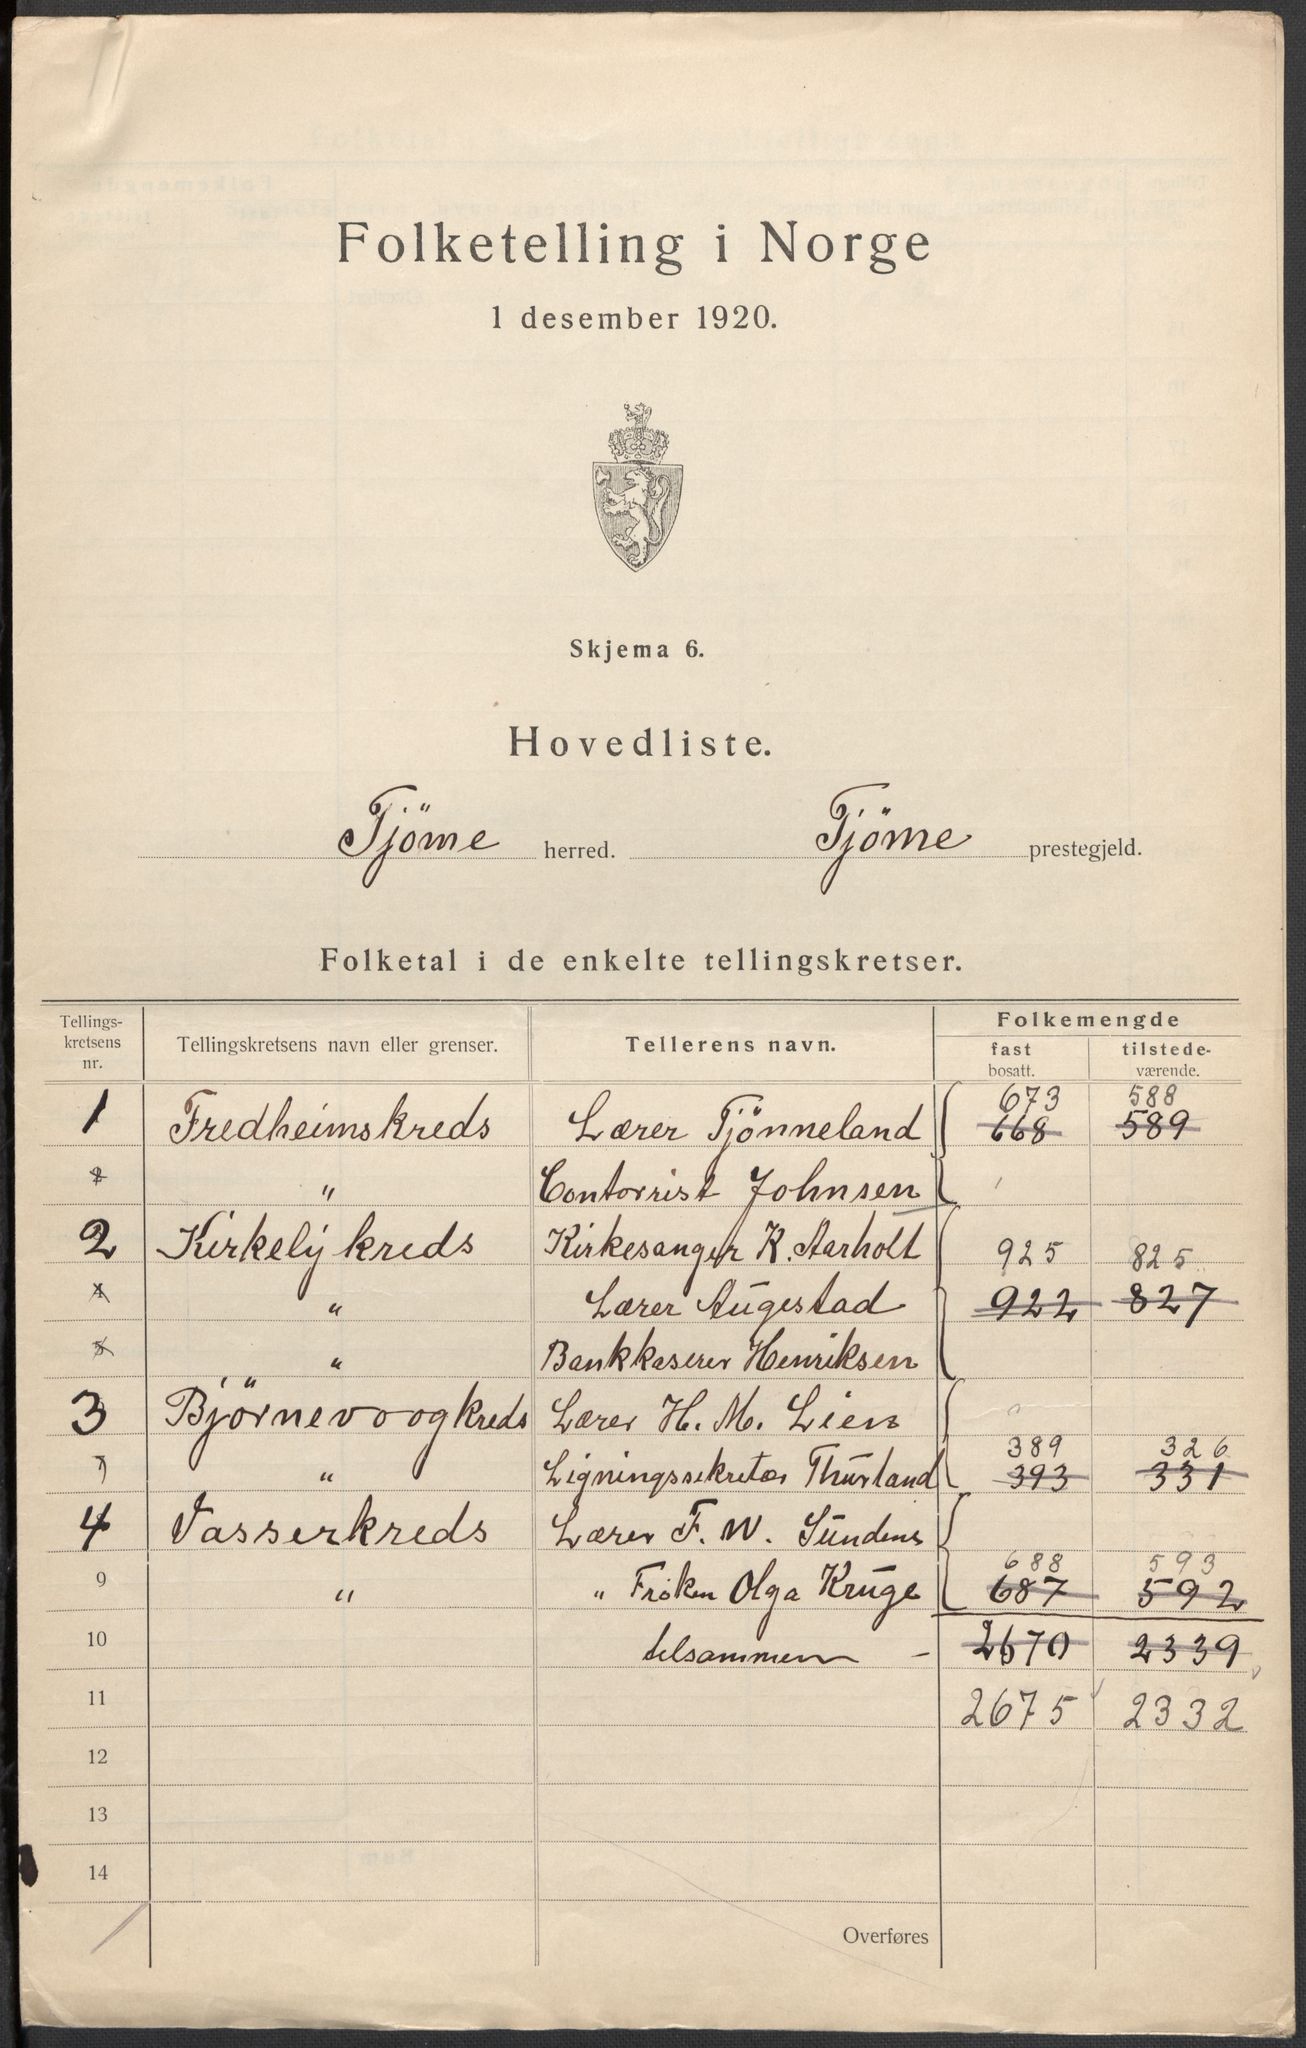 Folketelling i Norge
1 desember 1920.
Skjema 6.
Hovedliste.
Tjöme herred. Tjöme prestegjeld.
Folketal i de enkelte tellingskretser.
Tellings-kretsens nr. Tellingskretsens navn eller grenser. Tellerens navn. Folkemengde
fast bosatt. tilstede-værende.
673 588
1 Fredheimskreds Lærer Tjönneland 668 589
2 " Contorrist Johnsen
2 Kirkelÿ kreds Kirkesanger K. Aarholt 925 825
4 " Lærer Augestad 922 827
5 " Bankkaserer Henriksen
3 Bjørnevoogkreds Lærer H. M. Lien
389 326
7 " Ligningssekretær Thurland 393 331
4 Vasserkreds Lærer F. W. Sundene
688 593
9 " " Frøken Olga Kruge 687 592
10 tilsammen - 2670 2339
11 2675 2332
12
13
14
Overføres